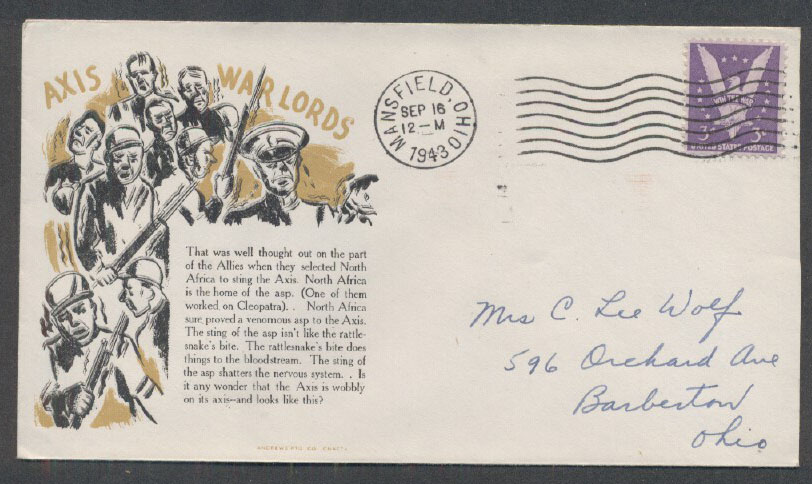 AXIS
WAR LORDS
That was well thought out on the part
of the Allies when they selected North
Africa to sting the Axis. North Africa
is the home of the asp. (One of them
worked on Cleopatra). . North Africa
sure proved a venomous asp to the Axis.
The sting of the asp isn't like the rattle-
snake's bite. The rattlesnake's bite does
things to the bloodstream. The sting of
the asp shatters the nervous system. . Is
it any wonder that the Axis is wobbly
on its axis--and looks like this?
MANSFIELD, OHIO
SEP 16
12 — M
1943
WIN THE WAR
3¢ 3¢
UNITED STATES POSTAGE
Mrs C. Lee Wolf
596 Orchard Ave
Barberton
Ohio